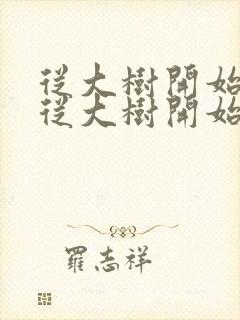 從大樹開始
從大樹開始
羅志祥